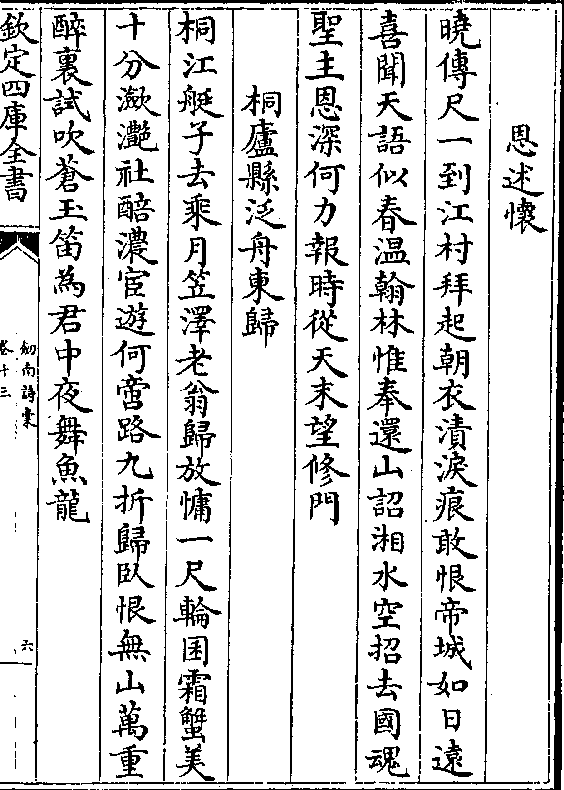 恩述懷
曉傳尺一到江村拜起朝衣漬淚痕敢恨帝城如日遠
喜聞天語似春温翰林惟奉還山詔湘水空招去國魂
聖主恩深何力報時從天末望修門
桐廬縣泛舟東歸
桐江艇子去乘月笠澤老翁歸放慵一尺輪囷霜蟹美
十分瀲灔社醅濃宦遊何啻路九折歸臥恨無山萬重
醉裏試吹蒼玉笛為君中夜舞魚龍
欽定四庫全書
劒南詩稾
卷十三
六